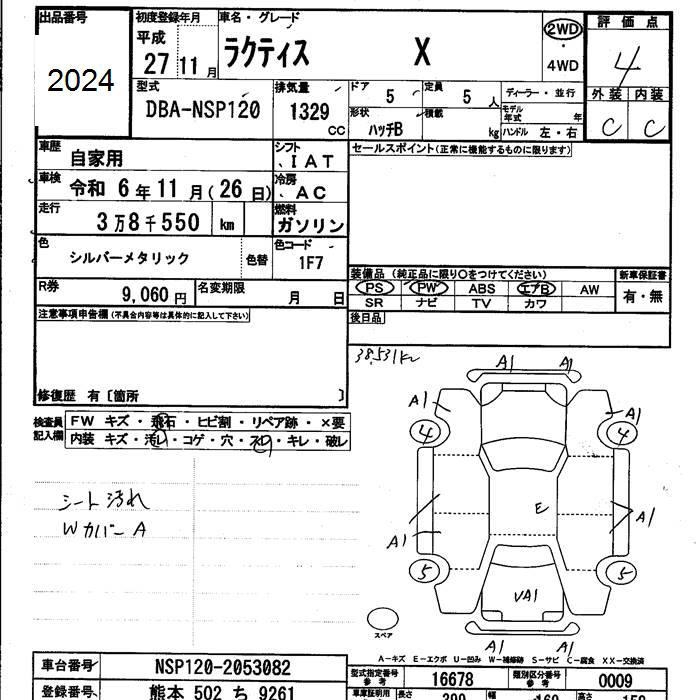 出品番号 初度登録年月 車名・グレード 評価点
2024
平成 27 11 月 ラクティス X 2WD ・ 4WD 4
型式 排気量 ドア 5 定員 5 人 ディーラー・並行 外装 内装
DBA-NSP120 1329 CC 形状 ハッチB 積載 kg モデル年式 年 ハンドル 左・右 C C
車歴 自家用 シフト 、IAT セールスポイント(正常に機能するものに限ります)
車検 令和 6 年 11 月(26 日) 冷房 、AC
走行 3万8千550 km 燃料 ガソリン
色 シルバーメタリック 色替 色コード 1F7
装備品(純正品に限り○をつけてください) 新車保証書
R券 9,060 円 名変期限 月 日 PS PW ABS エアB AW 有・無
SR ナビ TV カワ
注意事項申告欄(不具合内容等は具体的に記入して下さい) 後日品
38,531km
修復歴 有〔箇所 〕
検査員記入欄 FW キズ・飛石・ヒビ割・リペア跡・×要
内装 キズ・汚レ・コゲ・穴・スレ・キレ・破レ
シート汚れ
WカバーA
A1 A1
A1 A1
4 4
E
A1 A1
5 5
VA1
スペア
A1 A1
A-キズ E-エクボ U-凹み W-補修跡 S-サビ C-腐食 XX-交換済
車台番号 NSP120-2053082 型式指定番号 参考 16678 類別区分番号 参考 0009
登録番号 熊本 502 ち 9261 車庫証明用 長さ 幅 高さ